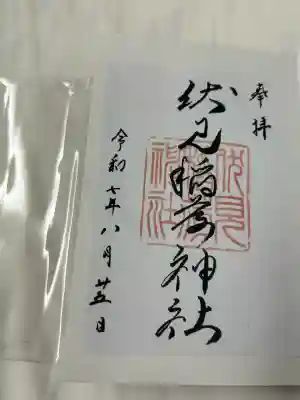 奉拝
伏見稲荷神社
令和七年八月廿五日